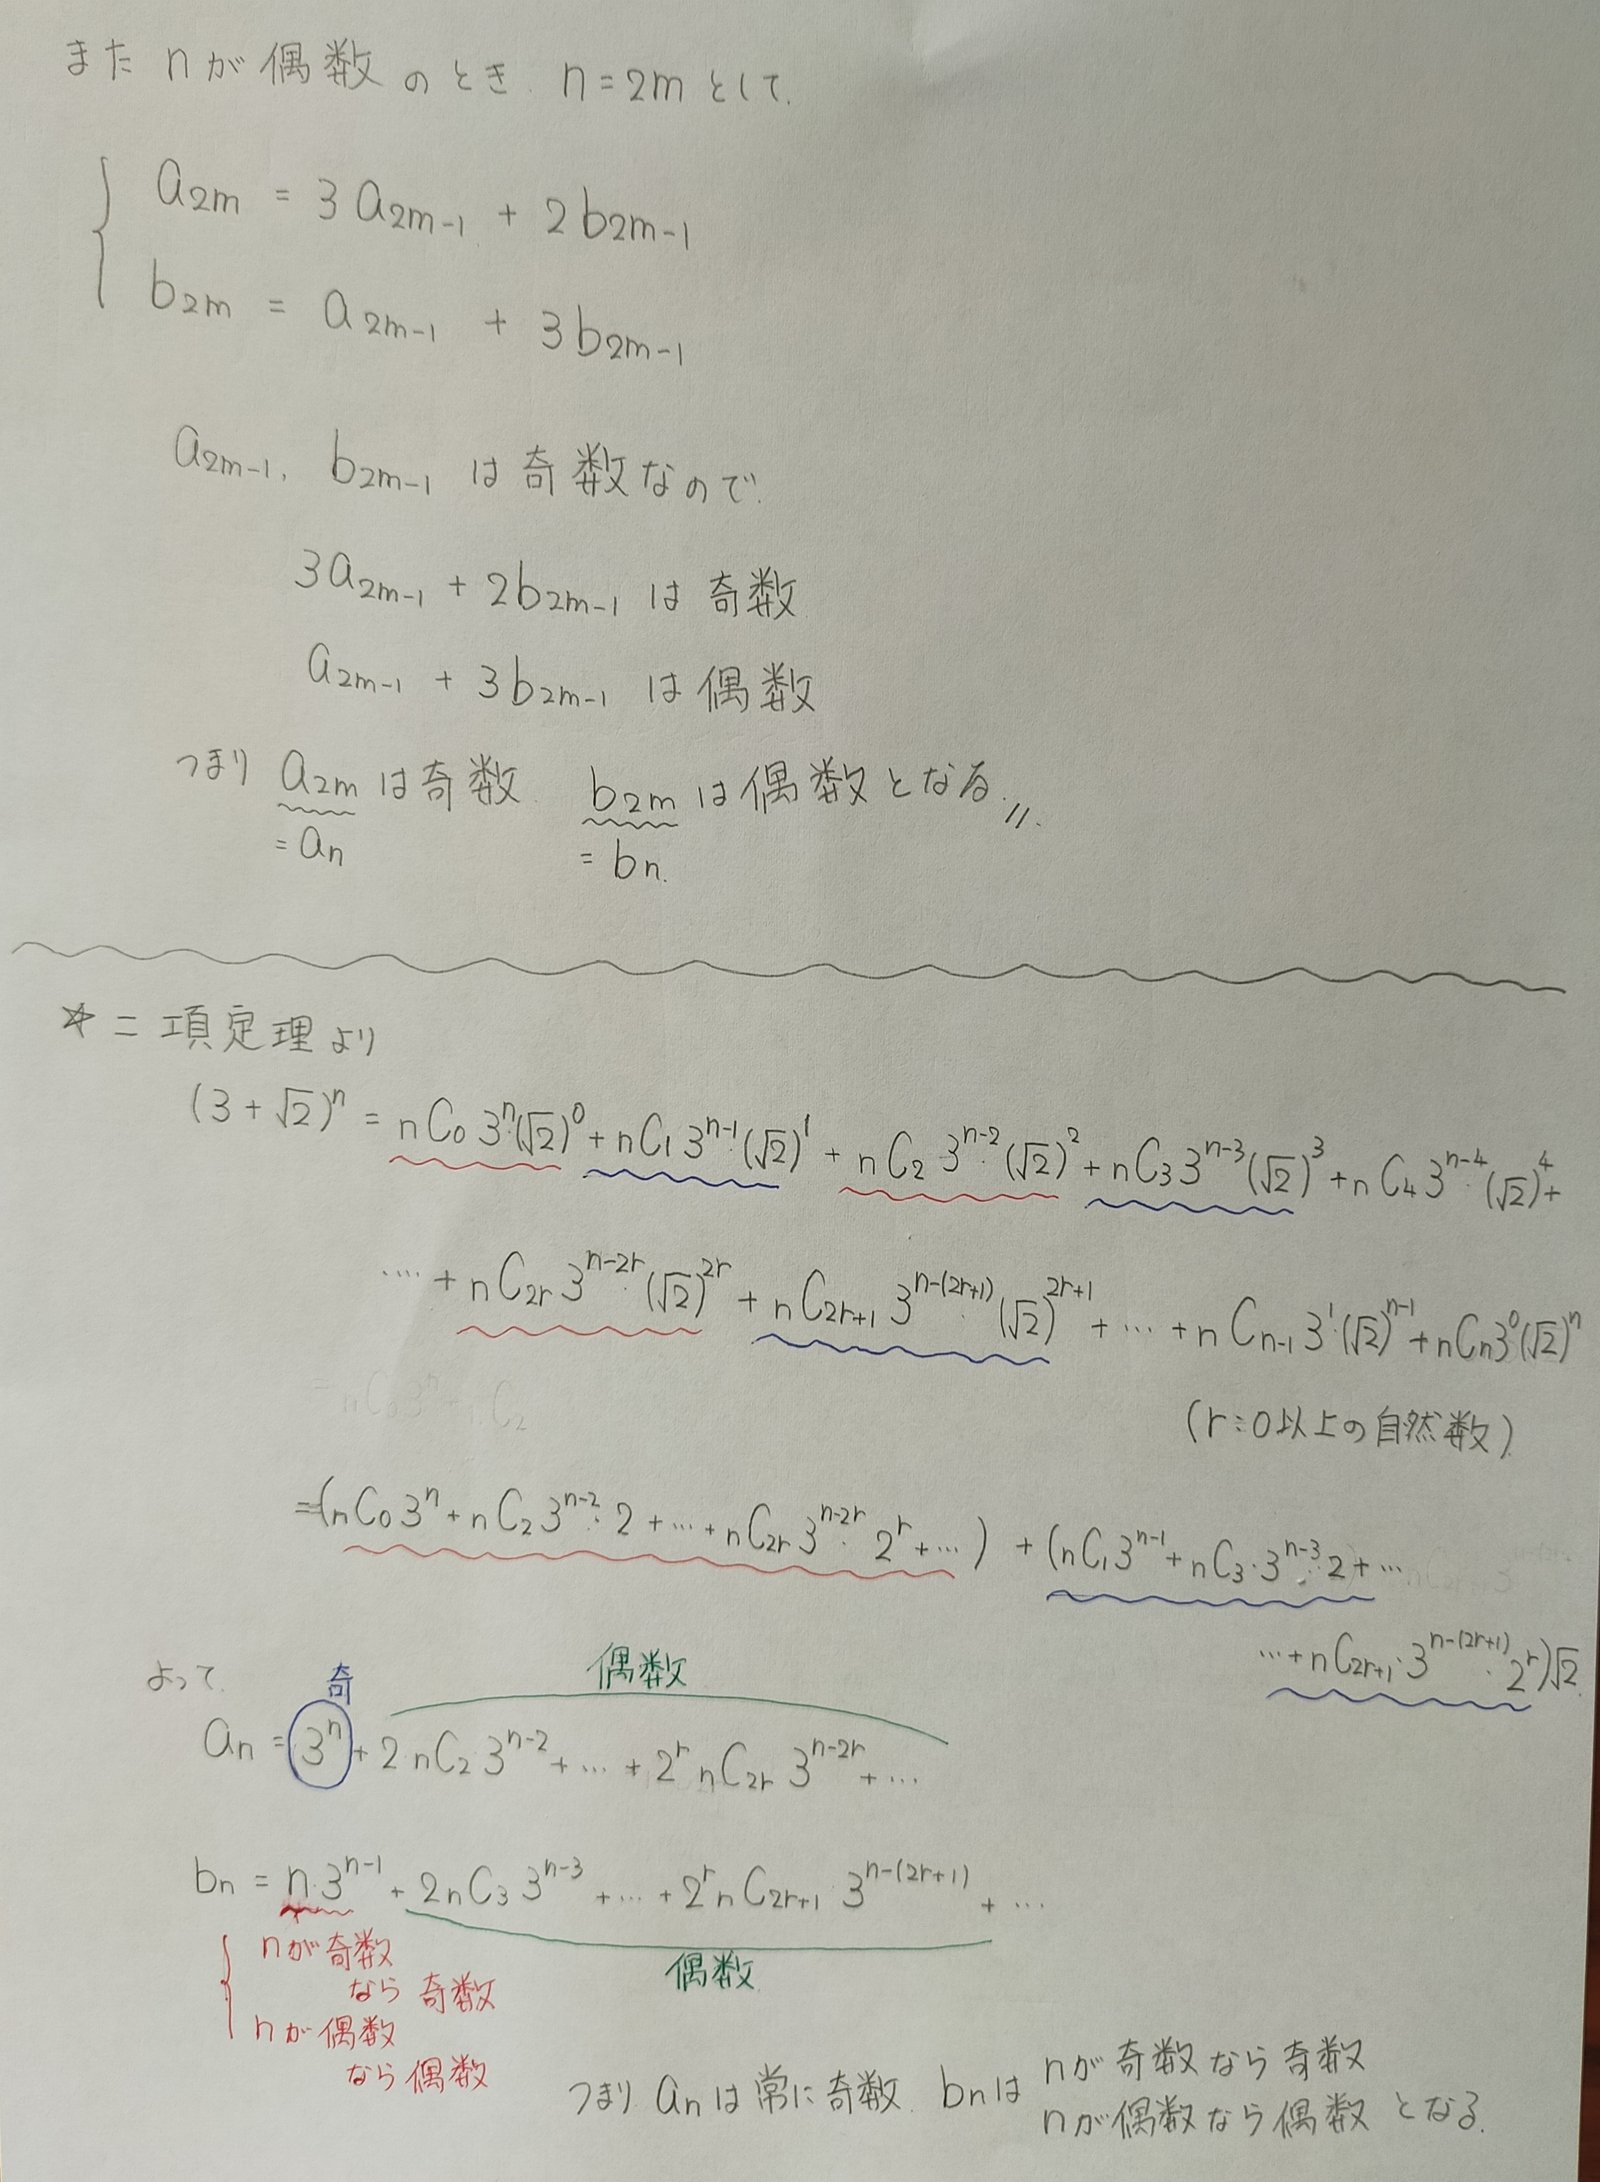 また nが偶数のとき. n=2mとして.
a2m = 3a2m-1 + 2b2m-1
b2m = a2m-1 + 3b2m-1
a2m-1, b2m-1 は奇数なので.
3a2m-1 + 2b2m-1 は 奇数
a2m-1 + 3b2m-1 は偶数
つまり a2m は奇数. b2m は偶数となる.//.
= an = bn.
☆ 二項定理より
(3+√2)^n = nC0 3^n(√2)^0 + nC1 3^n-1・(√2)^1 + nC2 3^n-2・(√2)^2 + nC3 3^n-3(√2)^3 + nC4 3^n-4・(√2)^4 +
‥‥ + nC2r 3^n-2r・(√2)^2r + nC2r+1 3^n-(2r+1)・(√2)^2r+1 + … + nCn-1 3^1・(√2)^n-1 + nCn3^0(√2)^n
(r:0以上の自然数)
=(nC0 3^n + nC2 3^n-2・2 + … + nC2r 3^n-2r・2^r + …) + (nC1 3^n-1 + nC3・3^n-3・2 + …
… + nC2r+1・3^n-(2r+1)・2^r)√2.
よって. 奇 偶数
an = 3^n + 2・nC2・3^n-2 + … + 2^r nC2r 3^n-2r + …
bn = n・3^n-1 + 2nC3 3^n-3 + … + 2^r nC2r+1 3^n-(2r+1) + …
nが奇数 偶数
なら 奇数
nが偶数
なら偶数
つまり anは常に奇数. bnは nが奇数なら奇数
nが偶数なら偶数 となる.